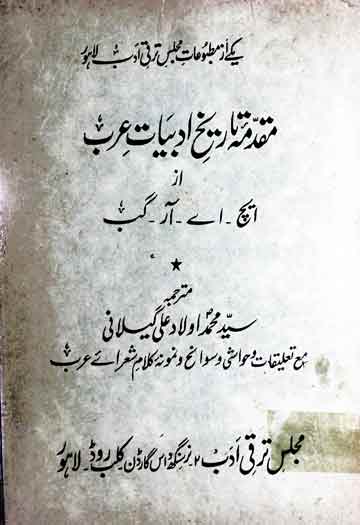 یکے از مطبوعات مجلس ترقی ادب لاہور
مقدمۂ تاریخ ادبیات عرب
از
ایچ ۔ اے ۔ آر ۔ گب
مترجمہ
سید محمد اولاد علی گیلانی
مع تعلیقات و حواشی و سوانح و نمونہ کلام شعرائے عرب
مجلس ترقی ادب ۲ ۔ نرسنگھ داس گارڈن ۔ کلب روڈ ۔ لاہور